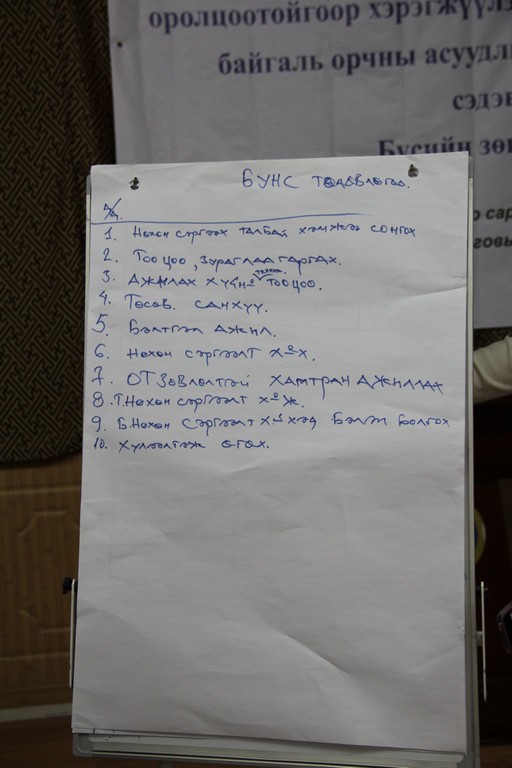 оролцоотойгоор хэрэгжүүлэ
байгаль орчны асуудл
сэдэв
Бүсийн зөв
сар
говь
БУНС төлөвлөгөө.
1. Нөхөн сэргээх талбай хэмжээ сонгох
2. Тооцоо, зураглал гаргах.
3. Ажиллах хүчний техник тооцоо.
4. Төсөв. санхүү.
5. Бэлтгэл ажил.
6. Нөхөн сэргээлт хох.
7. ОТ зөвлөлтэй хамтран ажиллах
8. Т.Нөхөн сэргээлт хож.
9. Б.Нөхөн сэргээлт хохэд бэлэн болгох
10. Хүлээлгэж өгөх.